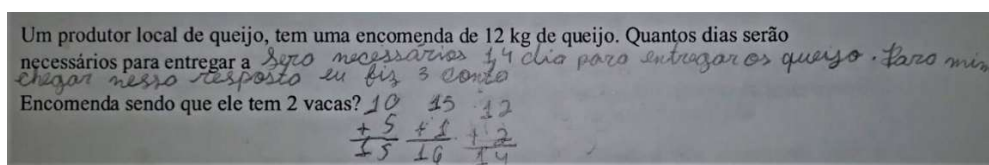 Um produtor local de queijo, tem uma encomenda de 12 kg de queijo. Quantos dias serão
necessários para entregar a Sero necessários 14 dia paro entregar os queijo. Paro min
chegar nesso resposto eu fis 3 conto
Encomenda sendo que ele tem 2 vacas? 10 15 12
+ 5 + 1 + 2
15 16 14